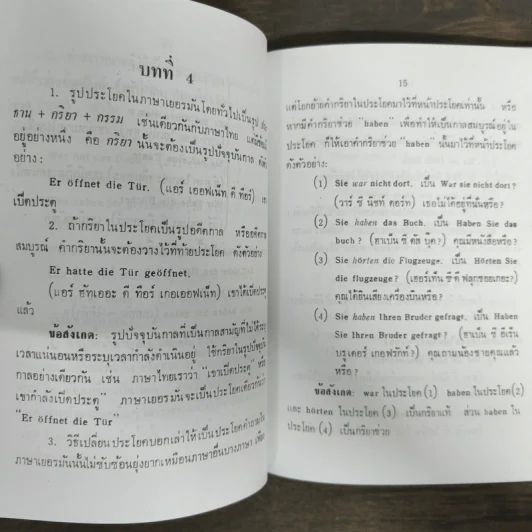 บทที่ 4
1. รูปประโยคในภาษาเยอรมันโดยทั่วไปเป็นรูป
ธาน + กริยา + กรรม เช่นเดียวกันกับภาษาไทย
อยู่อย่างหนึ่ง คือ กริยา นั้นจะต้องเป็นรูปปัจจุบันกาล ดังตัว
อย่าง:
Er öffnet die Tür. (แอร์ เออฟเน็ท ดี ทือร์)
เปิดประตู
2. ถ้ากริยาในประโยคเป็นรูปอดีตกาล หรืออดีตกาล
สมบูรณ์ คำกริยานั้นจะต้องวางไว้ที่ท้ายประโยค ดังตัวอย่าง
Er hatte die Tür geöffnet.
(แอร์ ฮัทเออะ ดี ทือร์ เกอเออฟเน็ท) เขาได้เปิดประตู
แล้ว
ข้อสังเกต: รูปปัจจุบันกาลที่เป็นกาลสามัญที่ไม่ได้ระบุ
เวลาแน่นอนหรือระบุเวลากำลังดำเนินอยู่ ใช้กริยาในรูปปัจจุบัน
กาลอย่างเดียวกัน เช่น ภาษาไทยเราว่า "เขาเปิดประตู" หรือ
เขากำลังเปิดประตู" ภาษาเยอรมันจะเป็นประโยคเดียวกันว่า
"Er öffnet die Tür"
3. วิธีเปลี่ยนประโยคบอกเล่าให้เป็นประโยคคำถามใน
ภาษาเยอรมันนั้นไม่ซับซ้อนยุ่งยากเหมือนภาษาอื่นบางภาษา เพียง
15
แต่โยกย้ายคำกริยาในประโยคมาไว้ที่หน้าประโยคเท่านั้น หรือ
หากมีคำกริยาช่วย "haben" เพื่อทำให้เป็นกาลสมบูรณ์อยู่ใน
ประโยค ก็ให้เอาคำกริยาช่วย "haben" นั้นมาไว้ที่หน้าประโยค
ดังตัวอย่าง:
(1) Sie war nicht dort. เป็น War sie nicht dort?
(วาร์ ซี นิชท์ ดอร์ท) เธอไม่ได้อยู่ที่นั่นหรือ?
(2) Sie haben das Buch. เป็น Haben Sie das
buch ? (ฮาเบ็น ซี ดัส บุค?) คุณมีหนังสือหรือ?
(3) Sie hörten die Flugzeuge. เป็น Hörten Sie
die flugzeuge ? (เฮอเท็น ซี ดี ฟลุกซอยเกอะ?)
คุณได้ยินเสียงเครื่องบินหรือ?
(4) Sie haben Ihren Bruder gefragt. เป็น Haben
Sie Ihren Bruder gefragt ? (ฮาเบ็น ซี อีเร็น
บรูเดอร์ เกอฟรักท์?) คุณถามน้องชายคุณแล้ว
หรือ ?
ข้อสังเกต: war ในประโยค (1) haben ในประโยค (2)
และ hörten ในประโยค (3) เป็นกริยาแท้ ส่วน haben ใน
ประโยค (4) เป็นกริยาช่วย